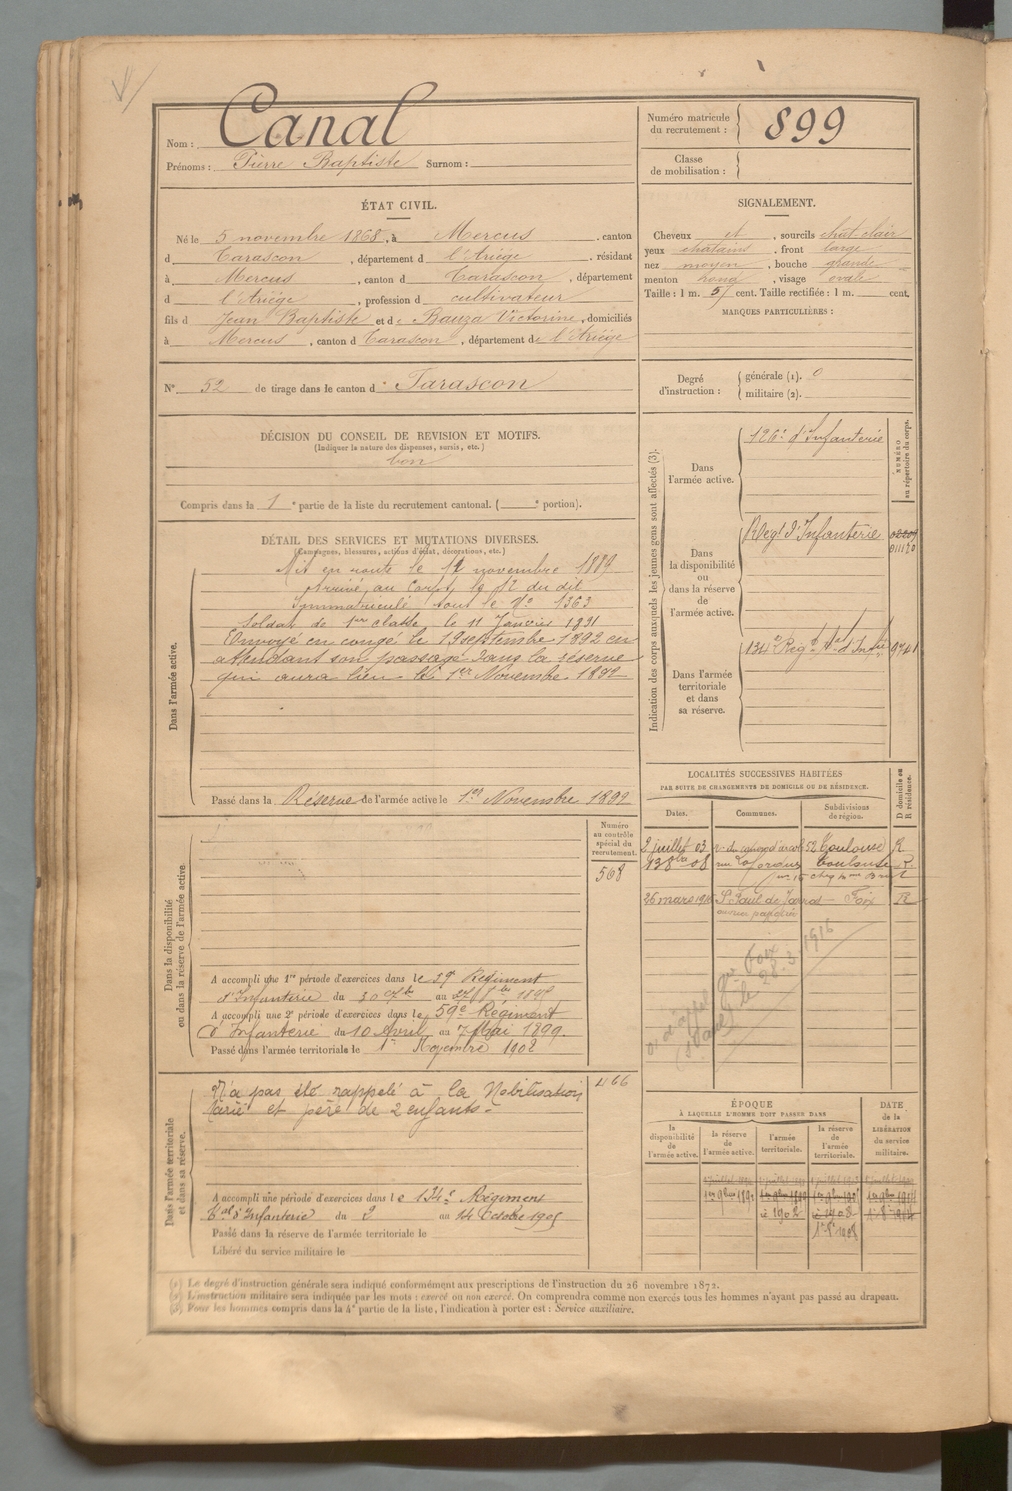 Nom : Canal
Prénoms : Pierre Baptiste Surnom :
Numéro matricule du recrutement : 899
Classe de mobilisation :
ÉTAT CIVIL.
Né le 5 novembre 1868, à Mercus, canton
d Tarascon, département d l'Ariège, résidant
à Mercus, canton d Tarascon, département
d l'Ariège, profession d cultivateur
fils d Jean Baptiste et de Bauza Victorine, domiciliés
à Mercus, canton d Tarascon, département de l'Ariège
N° 52 de tirage dans le canton d Tarascon
SIGNALEMENT.
Cheveux et, sourcils chat. clair
yeux chatains, front large
nez moyen, bouche grande
menton rond, visage ovale
Taille : 1 m. 57 cent. Taille rectifiée : 1 m. cent.
MARQUES PARTICULIÈRES :
Degré d'instruction : générale (1). 0
militaire (2).
DÉCISION DU CONSEIL DE REVISION ET MOTIFS.
(Indiquer la nature des dispenses, sursis, etc.)
bon
Compris dans la 1e partie de la liste du recrutement cantonal. ( e portion).
DÉTAIL DES SERVICES ET MUTATIONS DIVERSES.
(Campagnes, blessures, actions d'éclat, décorations, etc.)
Dans l'armée active.
Mit en route le 12 novembre 1889
Arrivé au Corps le 12 du dit
Immatriculé sous le N° 1363
Soldat de 1re classe le 11 Janvier 1891
Envoyé en congé le 19 septembre 1892 en
attendant son passage dans la réserve
qui aura lieu le 1er Novembre 1892
Passé dans la Réserve de l'armée active le 1er Novembre 1892
Indication des corps auxquels les jeunes gens sont affectés (3).
NUMÉRO au répertoire du corps.
Dans l'armée active.
126e d'Infanterie
Dans la disponibilité ou dans la réserve de l'armée active.
Regt d'Infanterie
011120
Dans l'armée territoriale et dans sa réserve.
134e Regt tal d'Infie
9741
LOCALITÉS SUCCESSIVES HABITÉES
PAR SUITE DE CHANGEMENTS DE DOMICILE OU DE RÉSIDENCE.
Dates. Communes. Subdivisions de région. D domicile ou R résidence.
2 juillet 03 52 Toulouse R
Toulouse R
26 mars 1916 St Paul de Jarrat - Foix R
Foix
le 28.3.1916
Dans la disponibilité ou dans la réserve de l'armée active.
Numéro au contrôle spécial du recrutement.
568
A accompli une 1re période d'exercices dans le Régiment
d'Infanterie du 30 au
A accompli une 2e période d'exercices dans le 59e Régiment
d'Infanterie du 10 Avril au 7 Mai 1899.
Passé dans l'armée territoriale le 1er Novembre 1902
Dans l'armée territoriale et dans sa réserve.
466
N'a pas été rappelé à la Mobilisation
Marié et père de 2 enfants -
A accompli une période d'exercices dans le 134e Régiment
tal d'Infanterie du 2 au 14 Octobre 1905
Passé dans la réserve de l'armée territoriale le
Libéré du service militaire le
ÉPOQUE
À LAQUELLE L'HOMME DOIT PASSER DANS
la disponibilité de l'armée active.
la réserve de l'armée active.
l'armée territoriale.
la réserve de l'armée territoriale.
DATE de la LIBÉRATION du service militaire.
1er 9bre 1892
(1) Le degré d'instruction générale sera indiqué conformément aux prescriptions de l'instruction du 26 novembre 1872.
(2) L'instruction militaire sera indiquée par les mots : exercé ou non exercé. On comprendra comme non exercés tous les hommes n'ayant pas passé au drapeau.
(3) Pour les hommes compris dans la 4e partie de la liste, l'indication à porter est : Service auxiliaire.